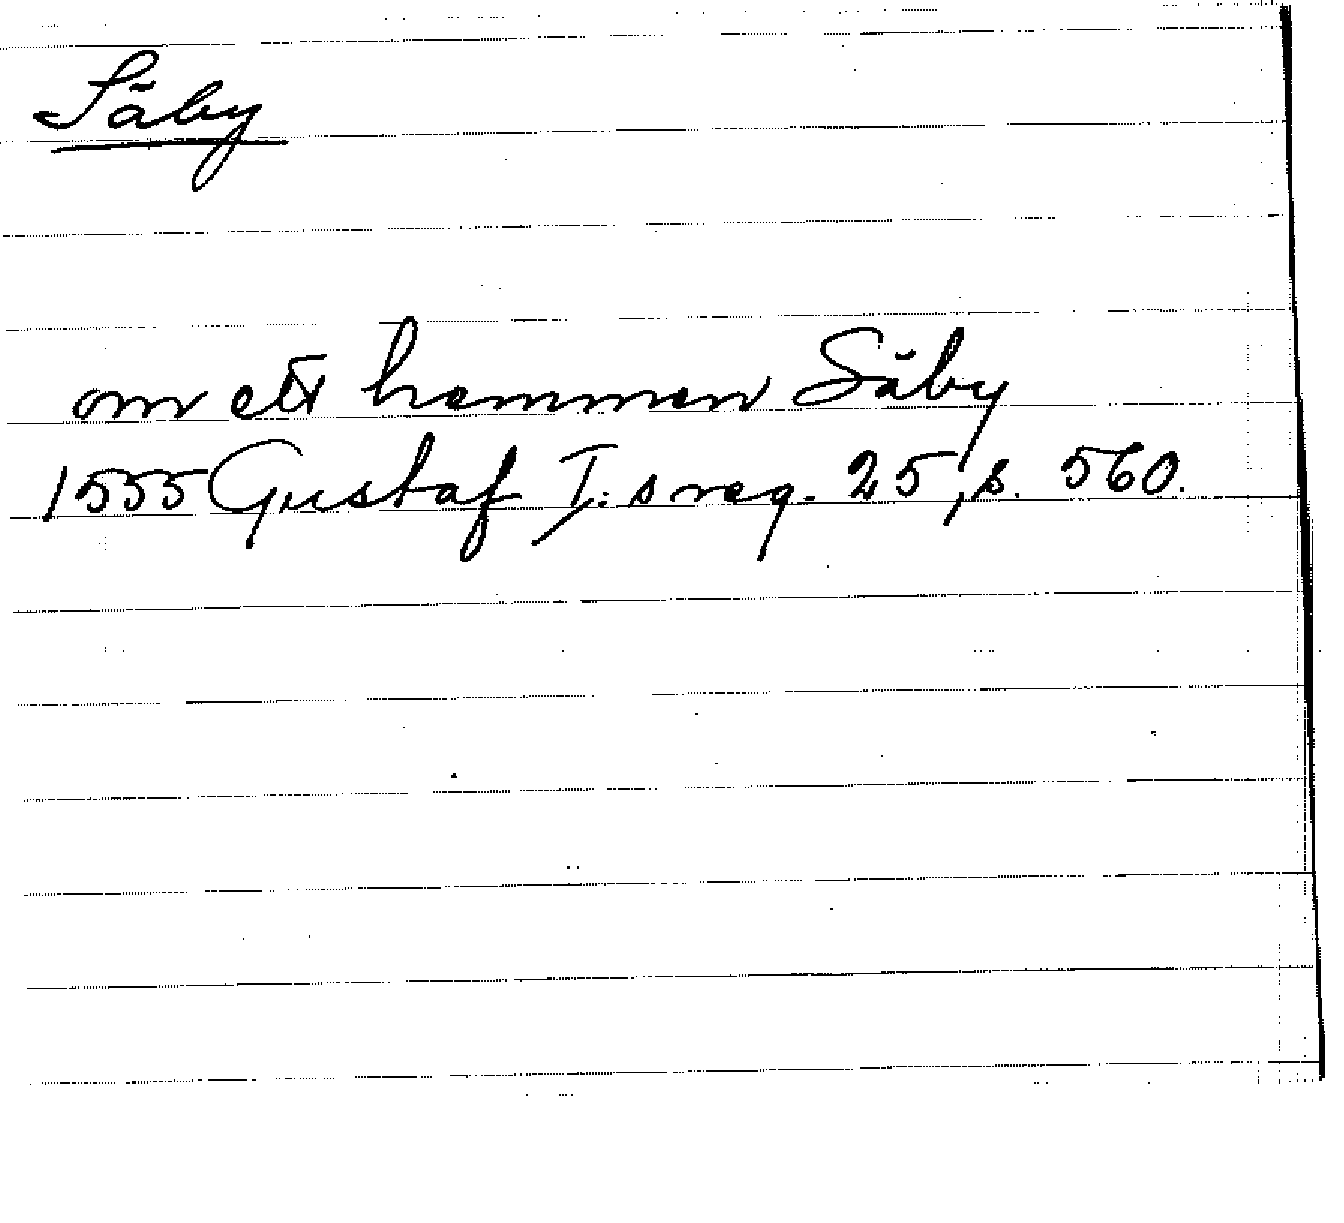 Säby
om ett hemman Säby
1555 Gustaf I:s reg. 25, s. 560.